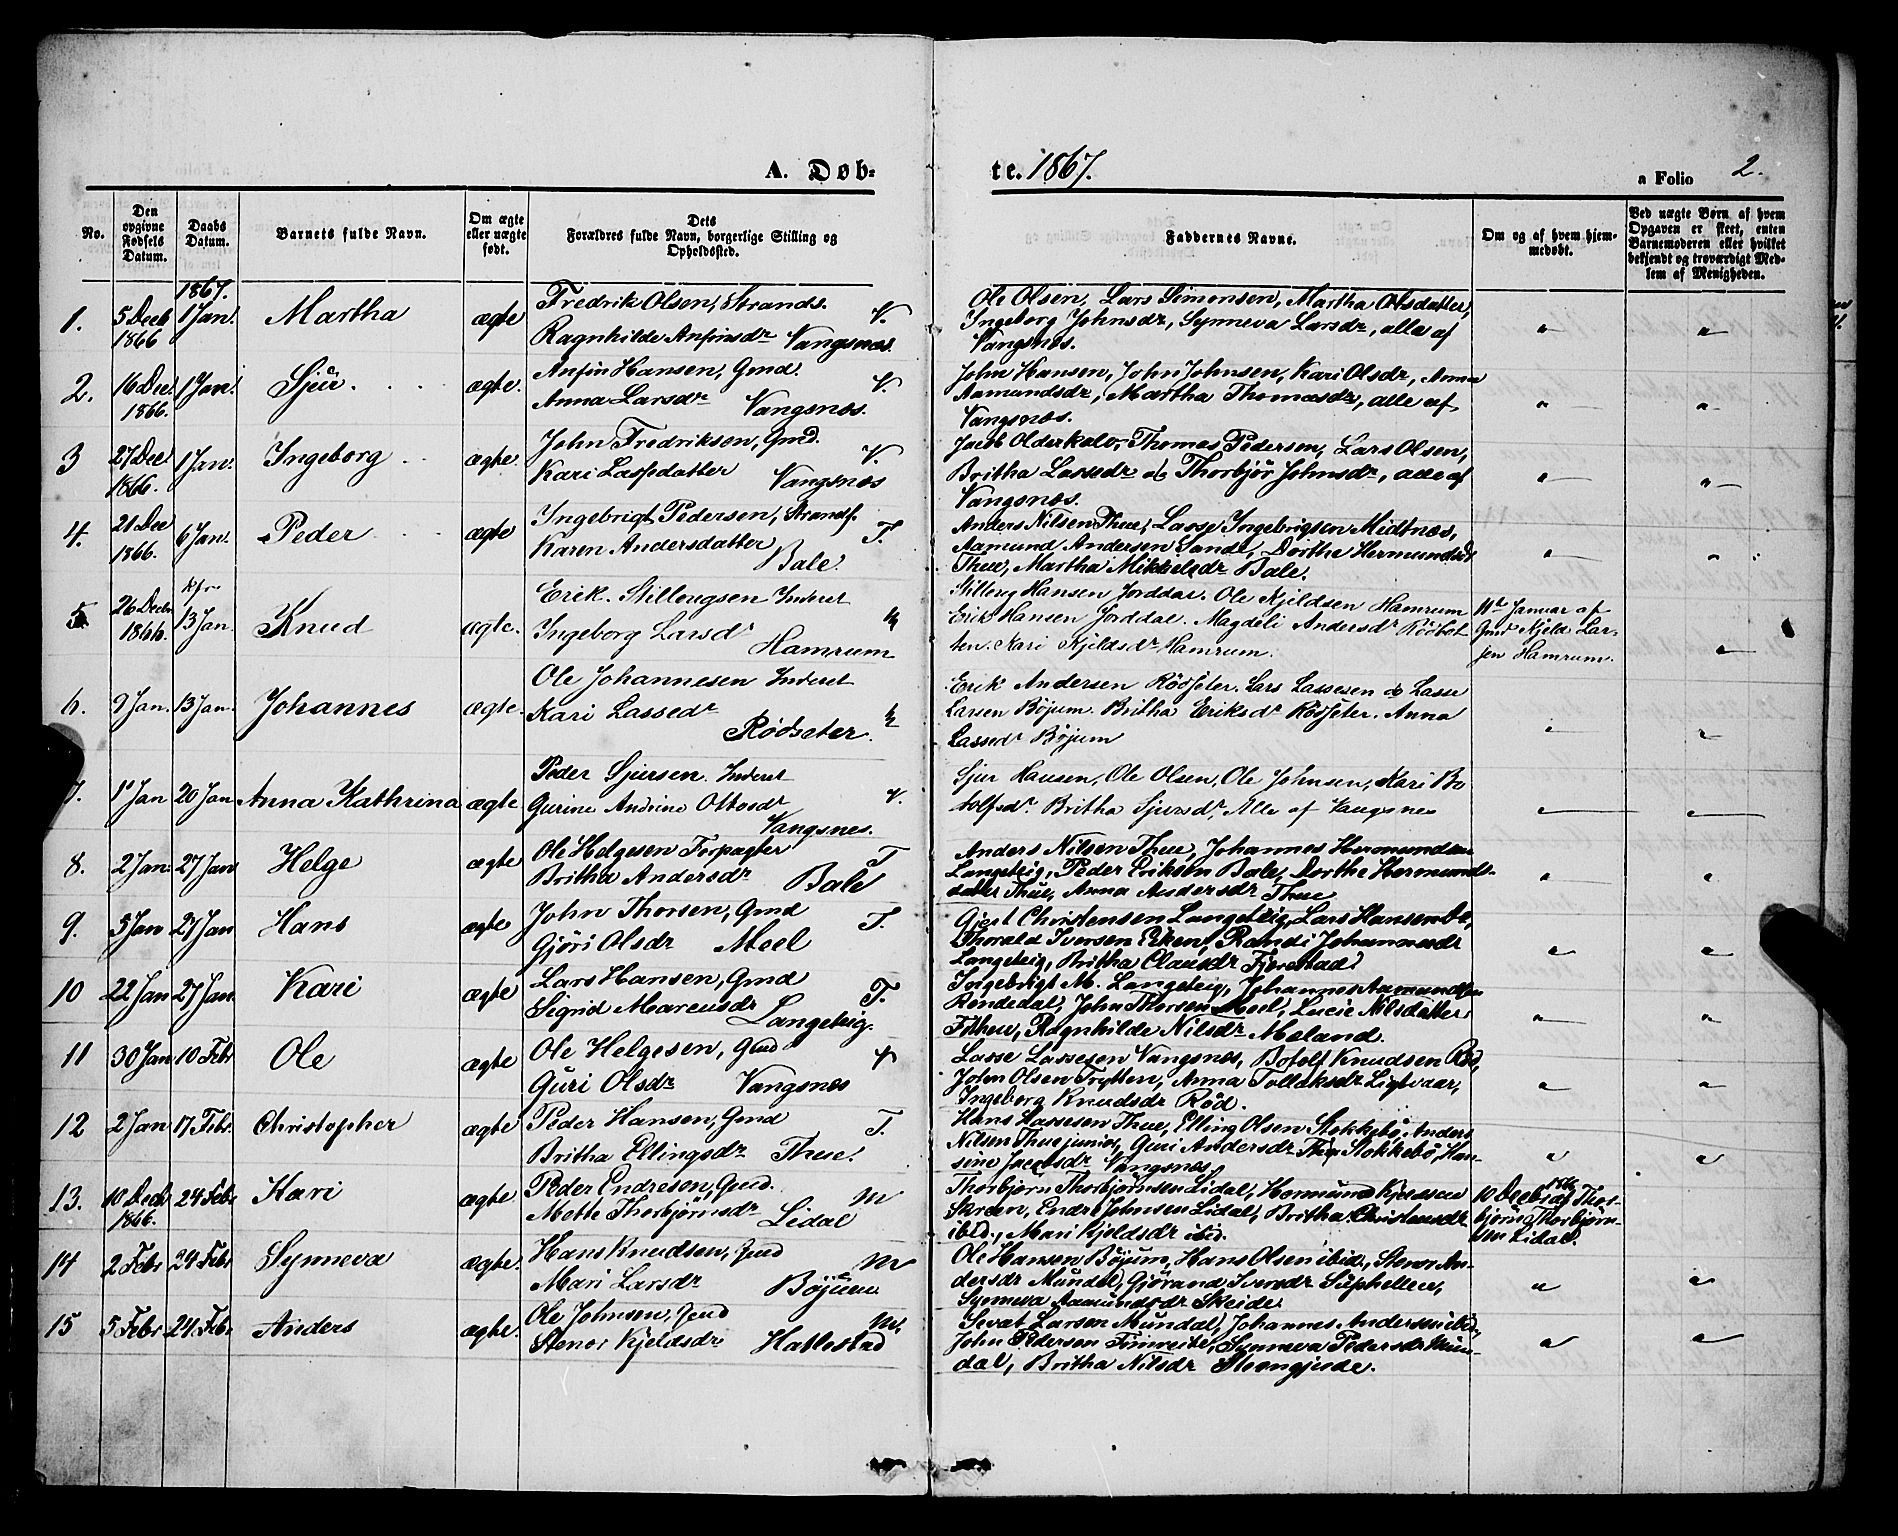 A. Døb-
te. 1867.
a Folio 2.
No.
Den opgivne Fødsels Datum.
Daabs Datum.
Barnets fulde Navn.
Om ægte eller uægte født.
Dets Forældres fulde Navn, borgerlige Stilling og Opholdssted.
Faddernes Navne.
Om og af hvem hjemmedøbt.
Ved uægte Børn af hvem Opgaven er skeet, enten Barnemoderen eller hvilket bekjendt og troværdigt Medlem af Menigheden.
1867.
1. 5 Decb 1866 1 Jan. Martha ægte
Fredrik Olsen, Strands. V.
Ragnhilde Anfinsdr Vangsnæs.
Ole Olsen, Lars Simonsen, Martha Olsdatter,
Ingeborg Johnsdr, Synneva Larsdr, alle af
Vangsnæs.
2. 16 Dec. 1866. 1 Jan. Sjur ægte.
Anfin Hansen, Gmd. V.
Anna Larsdr Vangsnæs.
John Hansen, John Johnsen, Kari Olsdr, Anna
Aamundsdr, Martha Thomasdr, alle af
Vangsnæs.
3 27 Dec. 1866. 1 Jan. Ingeborg ægte.
John Fredriksen, Gmd. V.
Kari Lassedatter Vangsnæs
Jacob Olderkalv, Thomas Pedersen, Lars Olsen,
Britha Lassedr & Thorbjør Johnsdr, alle af
Vangsnæs.
4. 21 Dec 1866. 6 Jan. Peder ægte
Ingebrigt Pedersen, Strands. T.
Karen Andersdatter Bale.
Anders Nilsen Thue, Lasse Ingebrigsen Midtnæs,
Aamund Andersen Sande, Dorthe Hermundsdr
Thue, Martha Mikkelsdr Bale.
5 26 Decbr 1866. 13 Jan. Knud ægte.
Erik Stillougsen Inderst
Ingeborg Larsdr Hamrum
Stilloug Hansen Jorddal. Ole Kjeldsen Hamrum
Erik Hansen Jorddal. Magdeli Andersdr Rødbot
ten. Kari Kjeldsdr Hamrum.
11te Januar af
Gmd Kjeld Lar-
sen Hamrum.
6. 9 Jan. 13 Jan. Johannes ægte.
Ole Johannesen Inderst
Kari Lassedr Rødseter.
Erik Andersen Rødseter. Lars Lassesen & Lasse
Larsen Bøjum. Britha Eriksdr Rødseter. Anna
Lassedr Bøjum
7. 1 Jan 20 Jan Anna Kathrina ægte
Peder Sjursen. Inderst
Gurine Andrine Ottosdr V.
Vangsnes.
Sjur Hansen, Ole Olsen, Ole Johnsen, Kari Bo
tolfsdr. Britha Sjursdr, Alle af Vangsnes
8. 2 Jan. 27 Jan Helge ægte
Ole Helgesen Forpagter T
Britha Andersdr Bale
Anders Nilsen Thue, Johannes Hermundsen
Langeteig, Peder Eriksen Bale, Dorthe Hermunds-
datter Thue, Anna Andersdr Thue
9. 5 Jan 27 Jan Hans ægte
John Thorsen, Gmd T.
Gjøri Olsdr Moel
Gjest Christensen Langeteig, Lars Hansen Do,
Thorald Iversen Eken, Randi Johannesdr
Langeteig, Britha Clausdr Fjærestad.
10 22 Jan 27 Jan. Kari ægte
Lars Hansen, Gmd T.
Sigrid Marcusdr Langeteig.
Ingebrigt M. Langeteig, Johannes Aamundsen
Røndedal, John Thorsen Moel, Lucie Nilsdatter
Føthen, Ragnhilde Nilsdr Meland.
11 30 Jan 10 Febr Ole ægte
Ole Helgesen, Gmd V
Guri Olsdr Vangsnes
Lasse Lassesen Vangsnæs, Botolf Knudsen Rød,
John Olsen Trytten, Anna Tollaksdr Ligtvaar,
Ingeborg Knudsdr Rød.
12 2 Jan 17 Febr. Christopher ægte
Peder Hansen, Gmd T.
Britha Ellingsdr Thue.
Hans Lassesen Thue, Elling Olsen Stokkebø, Anders
Nilsen Thue junior, Guri Andersdr Thue Stokkebø, Han-
sine Jacobsdr Vangsnæs.
13. 10 Decb 1866. 24 Febr Kari ægte
Peder Endresen, Gmd. M
Mette Thorbjørnsdr Lidal
Thorbjørn Thorbjørnsen Lidal, Hermund Kjeldsen
Skreen, Endre Johnsen Lidal, Britha Christensdr
ibid., Mari Kjeldsdr ibid.
10 Decbr 1866 af Thor-
bjørn Thorbjørn-
sen Lidal.
14 2 Febr 24 Febr Synneva ægte.
Hans Knudsen, Gmd M
Mari Larsdr Bøjum.
Ole Hansen Bøjum, Hans Olsen ibid, Stenor An-
dersdr Mundal, Gjørand Iversdr Suphellen,
Synneva Aamundsdr Skeide.
15 5 Febr 24 Febr Anders ægte.
Ole Johnsen, Gmd M.
Stenor Kjeldsdr Hatlestad
Sivat Larsen Mundal, Johannes Andersen ibid.,
John Pedersen Fimreite, Synneva Pedersdr Mun-
dal, Britha Nilsdr Stongjerde.